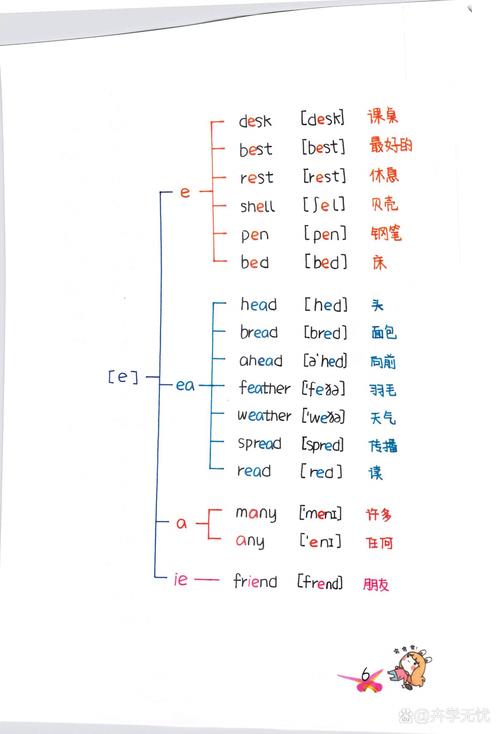 desk [desk] 课桌
best [best] 最好的
e rest [rest] 休息
shell [ʃel] 贝壳
pen [pen] 钢笔
bed [bed] 床
head [hed] 头
bread [bred] 面包
ahead [ə'hed] 向前
[e] ea feather ['feðə] 羽毛
weather ['weðə] 天气
spread [spred] 传播
read [red] 读
many ['menɪ] 许多
a any ['enɪ] 任何
ie friend [frend] 朋友
6
卉学无忧